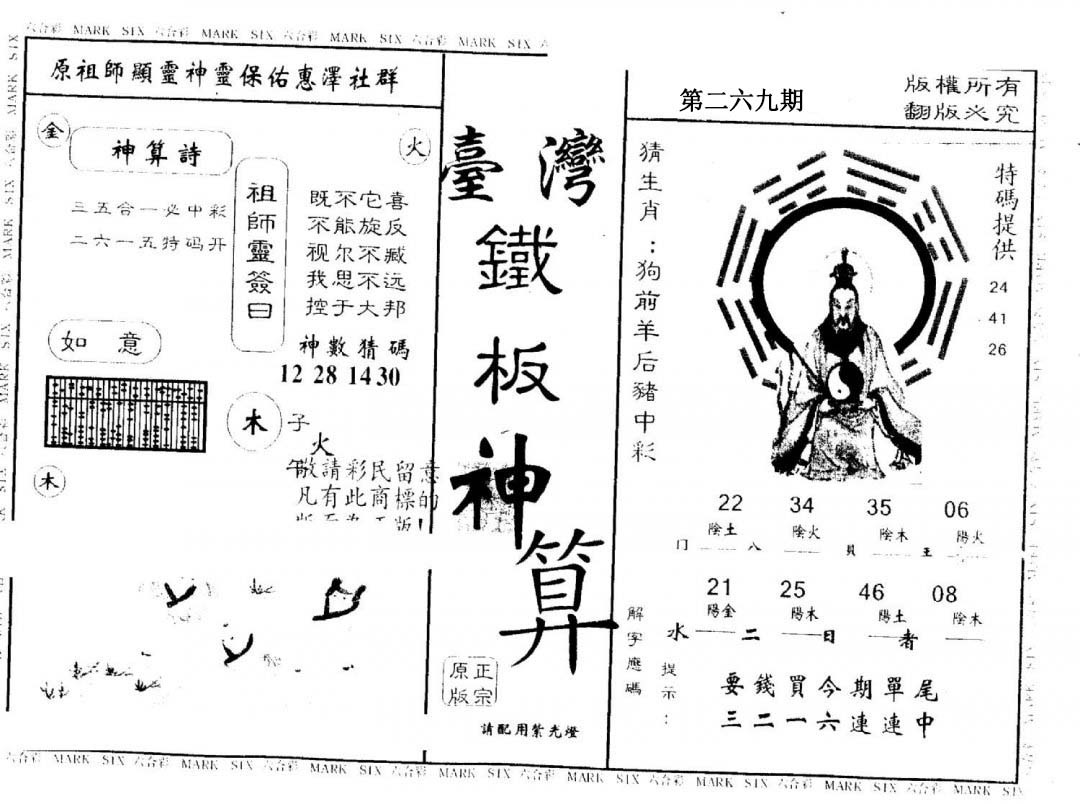 六合彩 MARK SIX 六合彩 MARK SIX 六合彩 MARK SIX 六合彩 MARK SIX
原祖師顯靈神靈保佑惠澤社群
金
神算詩
火
三五合一必中彩
二六一五特码开
祖師靈簽曰
既不它喜
不能旋反
视尔不臧
我思不远
控于大邦
如意
神數猜碼
12 28 14 30
木
子
火
午
木
敬請彩民留意
凡有此商標的
臺灣
鐵
板
神
算
正宗
原版
請配用紫光燈
第二六九期
版權所有
翻版必究
猜生肖：狗前羊后豬中彩
特碼提供
24
41
26
22 34 35 06
陰土 陰火 陰木 陽火
21 25 46 08
陽金 陽木 陽土 陰木
水 二 日 者
解字應碼
提示：
要錢買今期單尾
三二一六連連中
六合彩 MARK SIX 六合彩 MARK SIX 六合彩 MARK SIX 六合彩 MARK SIX 六合彩 MARK SIX 六合彩 MARK SIX 六合彩 MARK SIX 六合彩 MARK SIX